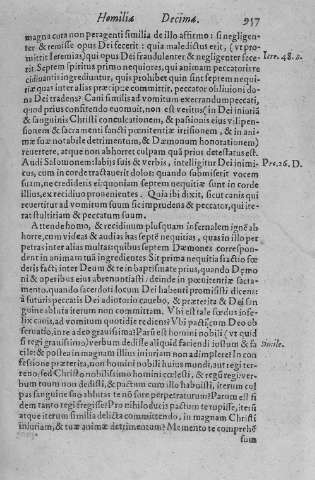 Homiliæ Decimæ. 937
magna cura non peragenti similia de illo affirmo: si negligen-
ter & remisse opus Dei fecerit: quia maledictus erit, (vt pro-
mittit Ieremias) qui opus Dei fraudulenter & negligenter fece-
rit Septem spiritus primo nequiores, qui animam peccatoris re
cidiuantis ingrediuntur, quis prohibet quin sint septem nequi-
tiæ quas inter alias præcipuæ committit, peccator obliuioni do-
na Dei tradens? Cani similis ad vomitum exerrandum peccati,
quod prius confitendo euomuit, non est veritus (in Dei iniuriā
& sanguinis Christi conculcationem, & passionis eius vilipen-
sionem & sacramenti sancti pœnitentiæ irrisionem, & in ani-
mæ suæ notabile detrimentum, & Dæmonum honorationem)
reuertere, atque non abhorret culpam quā prius detestatus est.
Audi Salomonem: labijs suis & verbis, intelligitur Dei inimi-
cus, cum in corde tractauerit dolos: quando submiserit vocem
suam, ne credideris ei: quoniam septem nequitiæ sunt in corde
illius, ex recidiuo prouenientes. Quia ibi dixit, sicut canis qui
reuertitur ad vomitum suum sic imprudens & peccator, qui ite-
rat stultitiam & peccatum suum.
Attende homo, & recidiuum plusquam infernalem ignē ab
horre, cum videas & audias has septē nequitias, quas in illo per
petras inter alias multas; quibus septem Dæmones correspon-
dent in animam tuā ingredientes Sit prima nequitia fractio fœ
deris facti inter Deum & te in baptismate prius, quando Dęmo
ni & operibus eius abrenuntiasti: deinde in pœnitentiæ sacra-
mento, quando sacerdoti locum Dei habenti promisisti dicens:
à futuris peccatis Dei adiutorio cauebo, & præterita & Dei san
guine ablata iterum non committam. Vbi est tale fœdus infe-
lix canis, ad vomitum quotidie rediens? Vbi pactū cum Deo ob
seruatio, in re adeo grauissima? Par est homini nobili (vt quid
si regi grauissimo) verbum dedisse aliquid faciendi iustum & fa
cile: & postea in magnam illius iniuriam non adimplere? In con
fessione præterita, non homini nobili huius mundi, aut regi ter-
reno, sed Christo nobilissimo homini cœlesti, & regū regi, ver-
bum tuum non dedisti, & pactum cum illo habuisti, iterum cul
pas sanguine suo ablutas te nō fore perpetraturum? Parum est fi
dem tanto regi fregisse? Pro nihilo ducis pactum te rupisse, iterū
atque iterum similia delicta committendo, in magnam Christi
iniuriam, & tuæ animæ detrimentum? Memento te comprehē
sum
Iere. 48. b.
Pro. 26. D.
Simile.